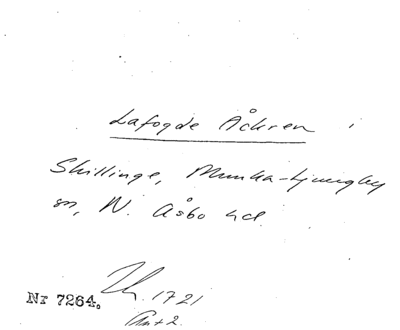 Lafogde Åkren i
Skillinge, Munka-Ljungby
sn, N. Åsbo hd.
1721
Nr 7264.